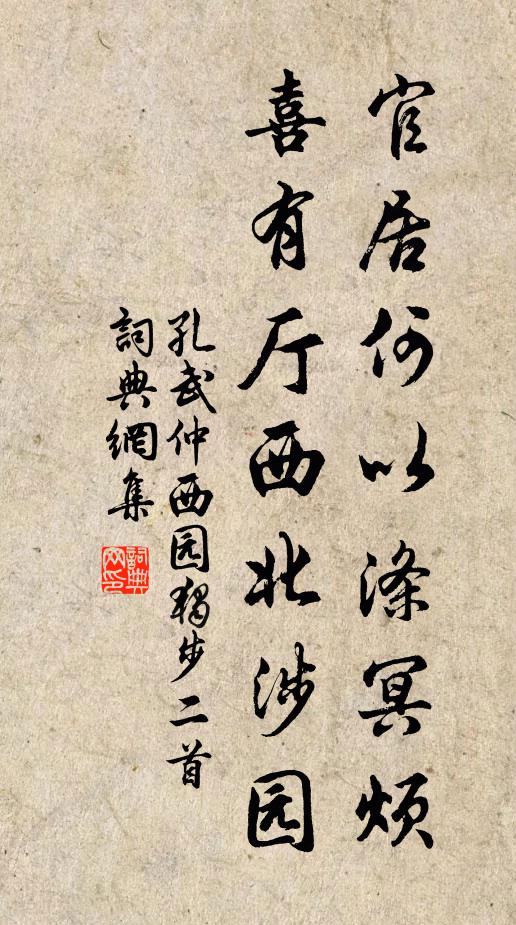 官居何以涤冥烦
喜有厅西北涉园
孔武仲西园独步二首
詞典網集
詞典网印